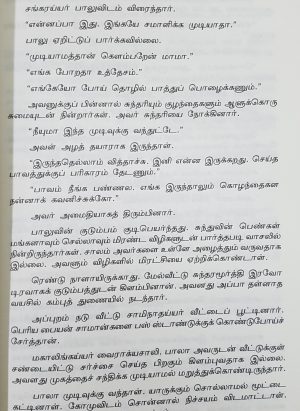 சங்கரய்யர் பாலுவிடம் விரைந்தார்.
"என்னப்பா இது. இங்கயே சமாளிக்க முடியாதா?"
பாலு ஏறிட்டுப் பார்க்கவில்லை.
"முடியாமத்தான் கெளம்பறேன் மாமா."
"எங்க போறதா உத்தேசம்."
"எங்கேயோ போய் தொழில் பாத்துப் பொழைக்கணும்."
அவனுக்குப் பின்னால் சுந்தரியும் குழந்தைகளும் ஆளுக்கொரு
சுமையுடன் நின்றார்கள். அவர் சுந்தரியை நோக்கினார்.
"நீயுமா இந்த முடிவுக்கு வந்துட்டே."
அவள் அழத் தயாராக இருந்தாள்.
"இருந்ததெல்லாம் வித்தாச்சு. இனி என்ன இருக்கறது. செய்த
பாவத்துக்குப் பரிகாரம் தேடணும்."
"பாவம் நீங்க பண்ணல. எங்க இருந்தாலும் கொழந்தைகள
நன்னாக் கவனிச்சுக்கோ."
அவர் அமைதியாகத் திரும்பினார்.
பாலுவின் குடும்பம் குடிபெயர்ந்தது. சுந்துவின் பெண்கள்
மங்களாவும் செல்லாவும் மிரண்ட விழிகளுடன் பார்த்தபடி வாசலில்
நின்றிருந்தார்கள். சாலம் அவர்களை உள்ளே அழைத்தும் வருவதாக
இல்லை. அவளும் விழிகளில் மிரட்சியை ஏற்றிக்கொண்டாள்.
ரெண்டு நாளாயிருக்காது. மேல்வீட்டு சுந்தரமூர்த்தி இரவோ
டிரவாகக் குடும்பத்துடன் கிளம்பினான். அவனது அப்பா தள்ளாத
வயசில் கம்புத் துணையில் நடந்தார்.
அப்புறம் நடு வீட்டு சாமிநாதய்யர் வீட்டைப் பூட்டினார்.
பெரிய பையன் சாமான்களை பஸ் ஸ்டாண்டுக்குக் கொண்டுபோய்ச்
சேர்த்தான்.
மகாலிங்கய்யர் வைராக்யசாலி. பாலா அவருடன் வீட்டுக்குள்
சண்டையிட்டு சர்ச்சை செய்த பிறகும் கிளம்புவதாக இல்லை.
அவளது முகத்தைச் சந்திக்க முடியாமல் மறுத்துக்கொண்டிருந்தார்.
பாலா முடிவுக்கு வந்தாள். யாருக்கும் சொல்லாமல் மூட்டை
கட்டினாள். கோமுவிடம் சொன்னால் நிச்சயம் விடமாட்டாள்.